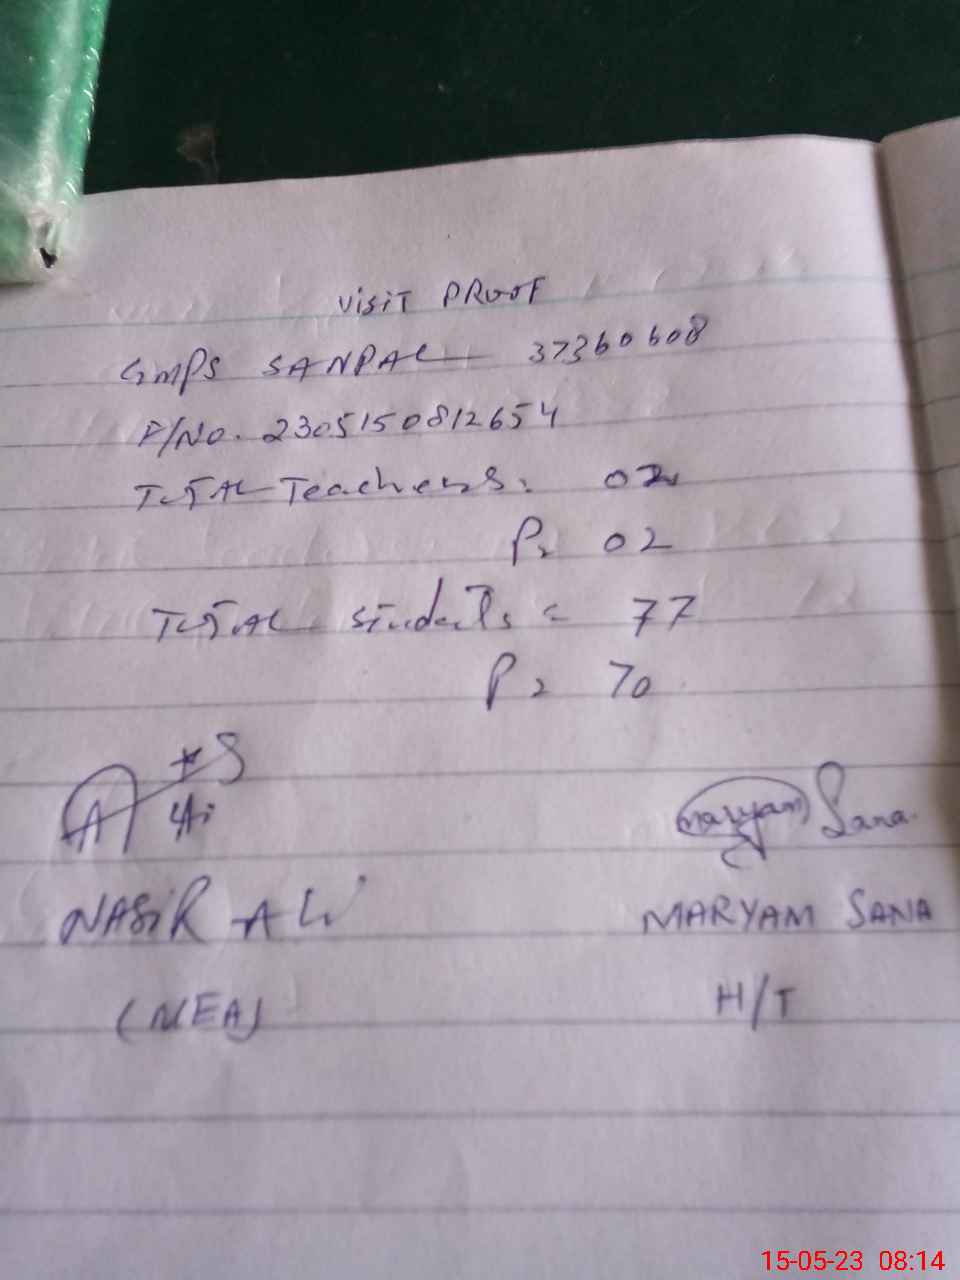 VISIT PROOF
GMPS SANPAL 37360608
F/NO. 2305150812654
TOTAL Teachers: 02
P= 02
TOTAL Students = 77
P= 70
Maryam Sana
NASIR ALI
MARYAM SANA
(NEA)
H/T
15-05-23 08:14